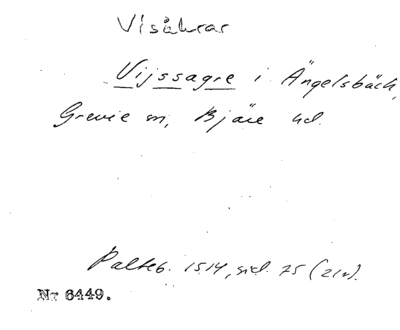 Visåkrar
Vijssagre i Ängelsbäck,
Grevie sn, Bjäre hd.
Palteb. 1514, sid. 75 (21v).
Nr 6449.